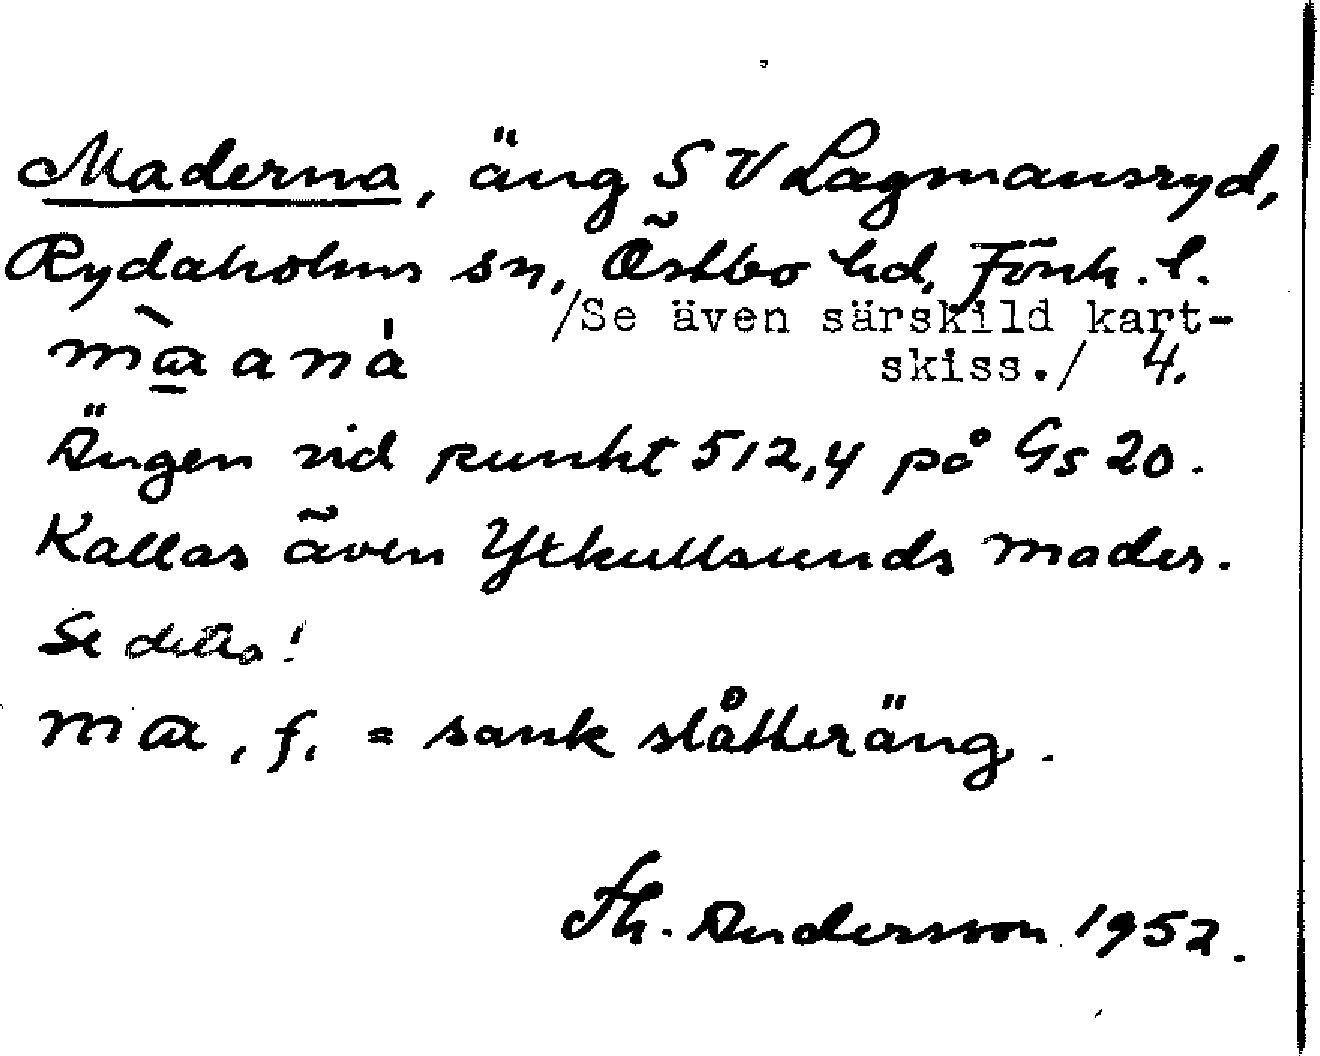 Maderna, äng SV Lagmansryd,
Rydaholms sn, Östbo hd, Jönk. l.
/Se även särskild kart-
skiss./ 4.
Ängen vid punkt 512,4 på Gs 20.
Kallas även Ytkullsunds mader.
Se detta!
ma, f. = sank slåtteräng.
Th. Andersson 1952.